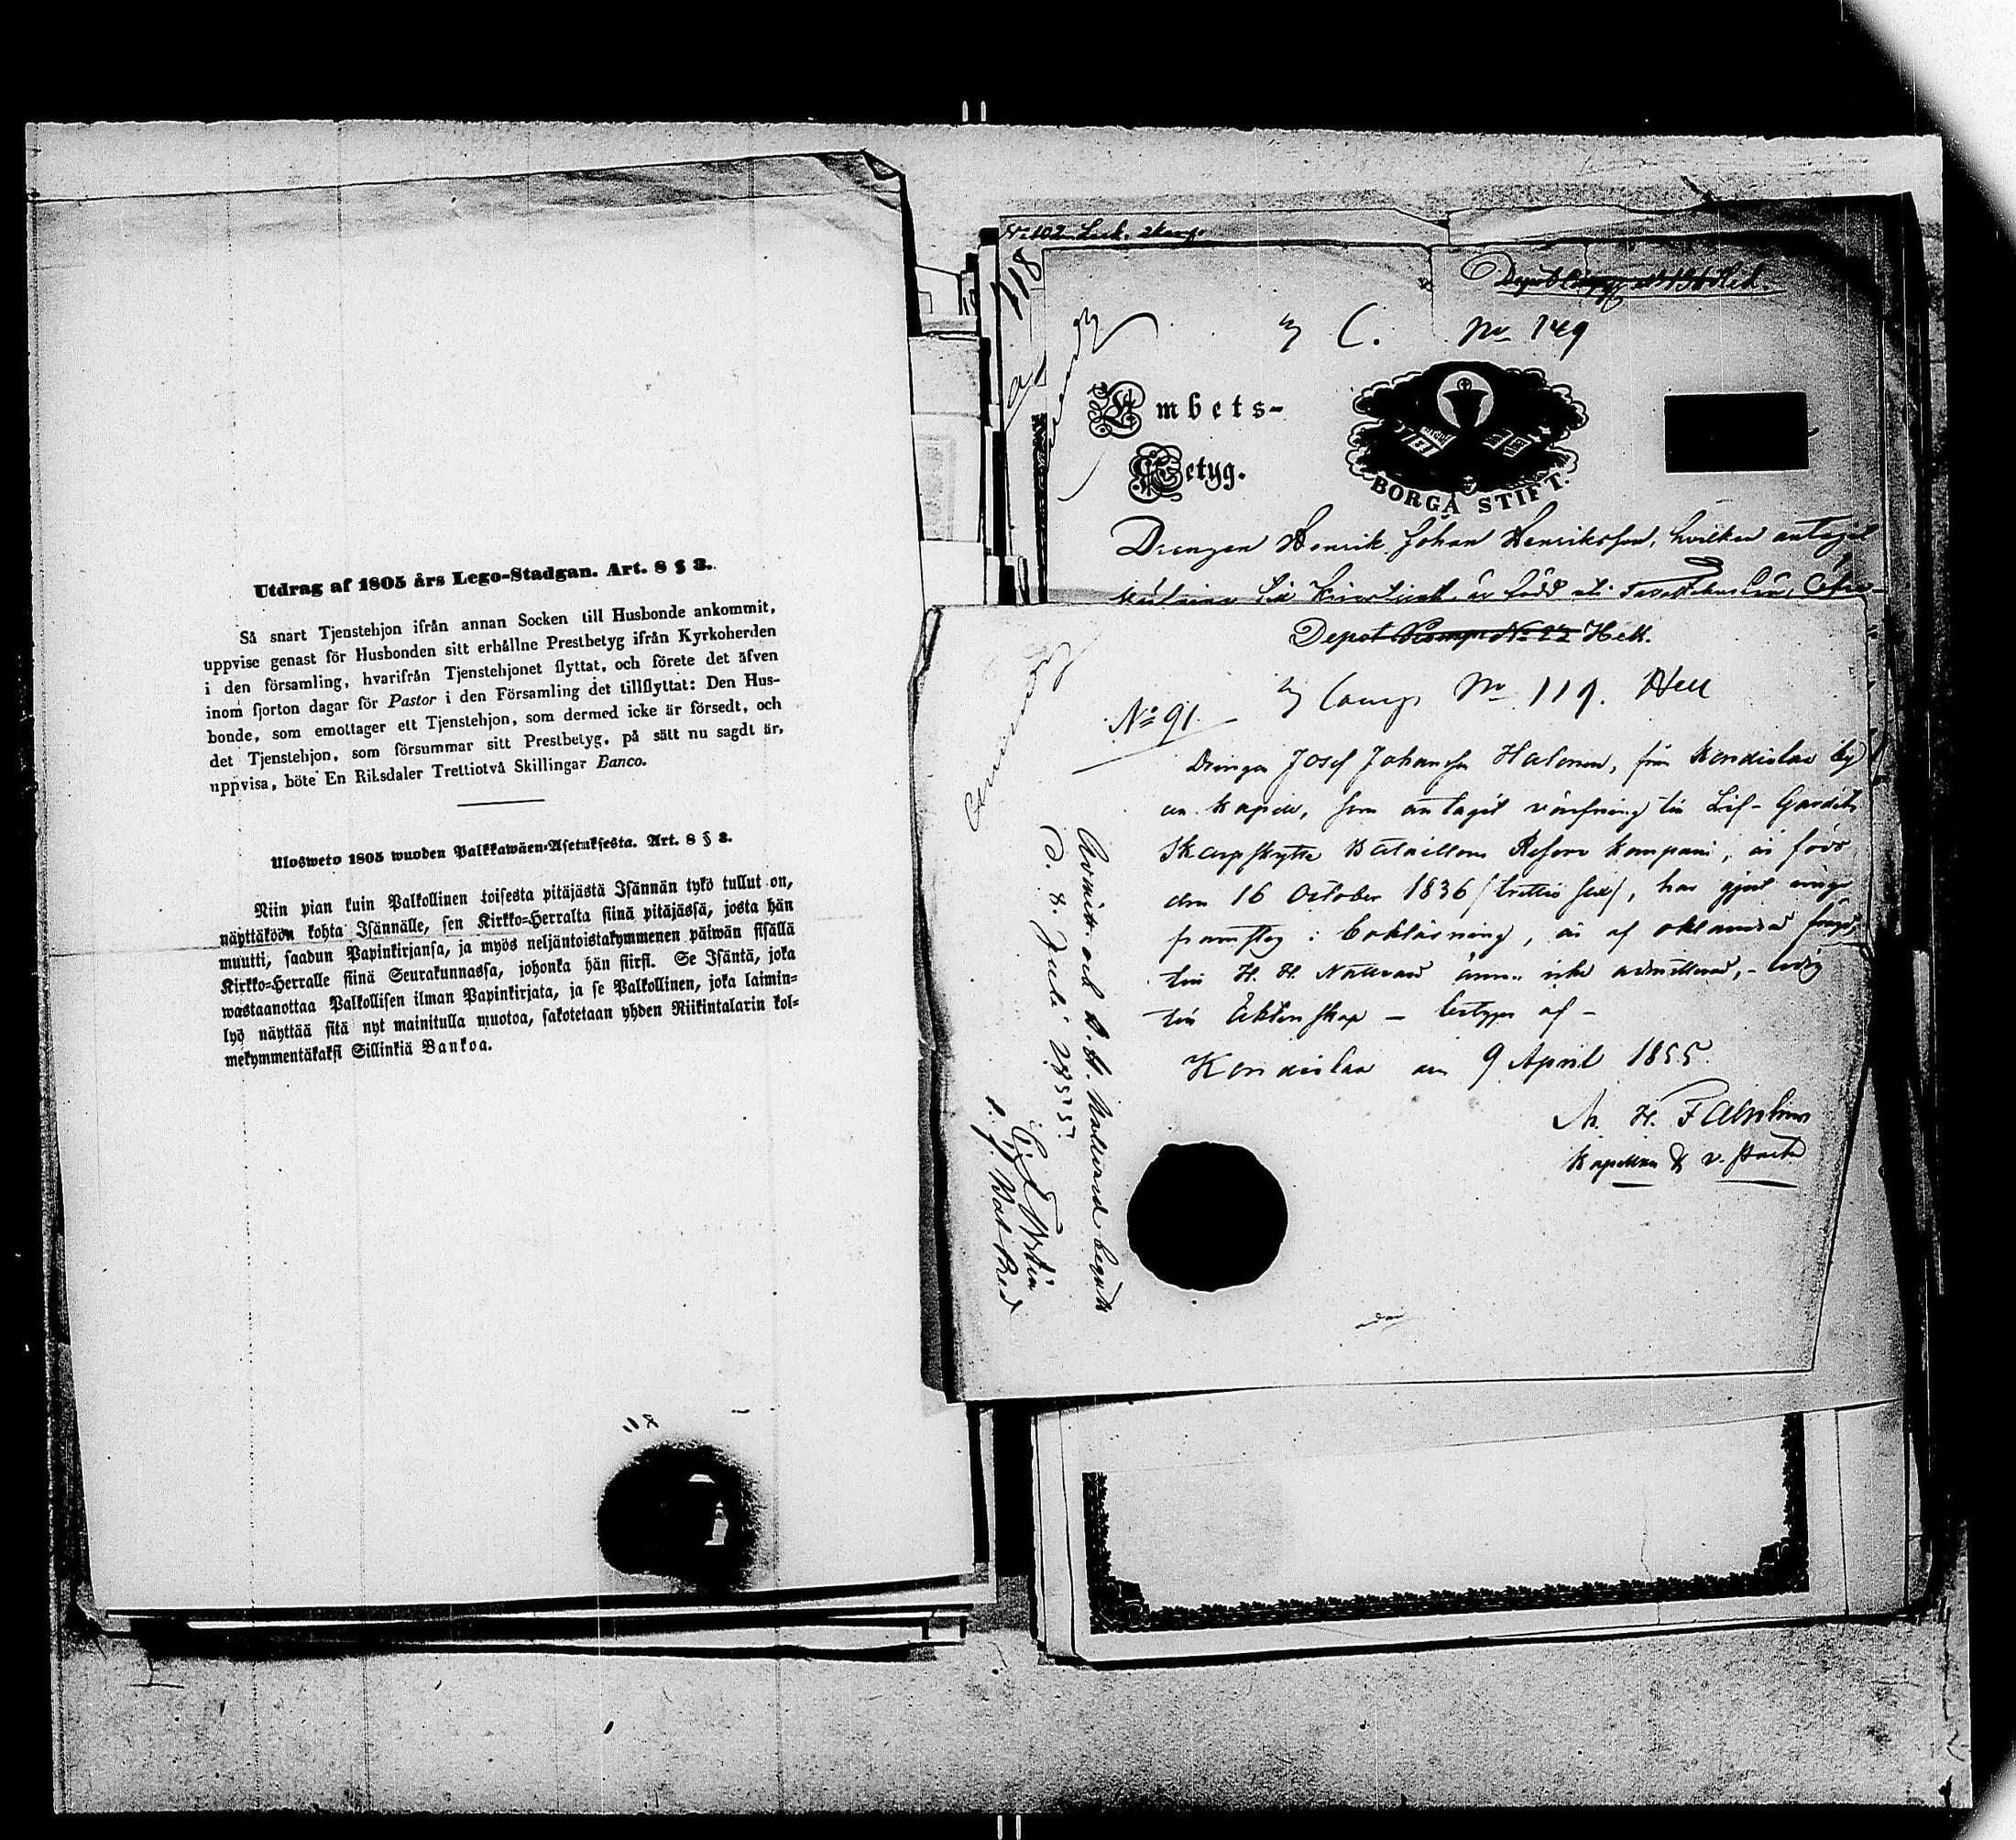 Utdrag af 1805 års Lego-Stadgan. Art. 8 § 3.
Så snart Tjenstehjon ifrån annan Socken till Husbonde ankommit,
uppvise genast för Husbonden sitt erhållne Prestbetyg ifrån Kyrkoherden
i den församling, hvarifrån Tjenstehjonet flyttat, och förete det äfven
inom fjorton dagar för Pastor i den Församling det tillflyttat: Den Hus-
bonde, som emottager ett Tjenstehjon, som dermed icke är försedt, och
det Tjenstehjon, som försummar sitt Prestbetyg, på sätt nu sagdt är,
uppvisa, böte En Riksdaler Trettiotvå Skillingar Banco.
Ulosweto 1805 wuoden Palkkawäen-Asetuksesta. Art. 8 § 3.
Niin pian kuin Palkollinen toisesta pitäjästä Isännän tykö tullut on,
näyttäköön kohta Isännälle, sen Kirkko-Herralta siinä pitäjässä, josta hän
muutti, saadun Papinkirjansa, ja myös neljäntoistakymmenen päiwän sisällä
Kirkko-Herralle siinä Seurakunnassa, johonka hän siirsi. Se Isäntä, joka
wastaanottaa Palkollisen ilman Papinkirjata, ja se Palkollinen, joka laimin-
lyö näyttää sitä nyt mainitulla muotoa, sakotetaan yhden Riikintalarin kol-
mekymmentäkaksi Sillinkiä Bankoa.
No 102
118
C. No 149
Embets-
Betyg.
BORGÅ STIFT.
Drengen Henrik Johan Henriksson, hvilken antagit
är född uti Tavastehus län,
Depot Komp. No 22 Hell.
Comp. No 119. Hell
No 91.
Drengen Josef Johansson Halonen, från Kondislax by
och Kapell, som antagit värfning till Lif-Gardets
Skarpskytte Bataillons Reserv Kompani, är född
den 16 October 1836 (trettio sex), har gjort ringa
framsteg i boklärning, är af oklandrad frejd,
till H. H. Nattvard ännu icke admitterad, - ledig
till Äktenskap - betygar af -
Kondislax den 9 April 1855.
Kapellan & v. Pastor
Admitt. och H. H. Nattvard begått
d. 8. Juli 1855.